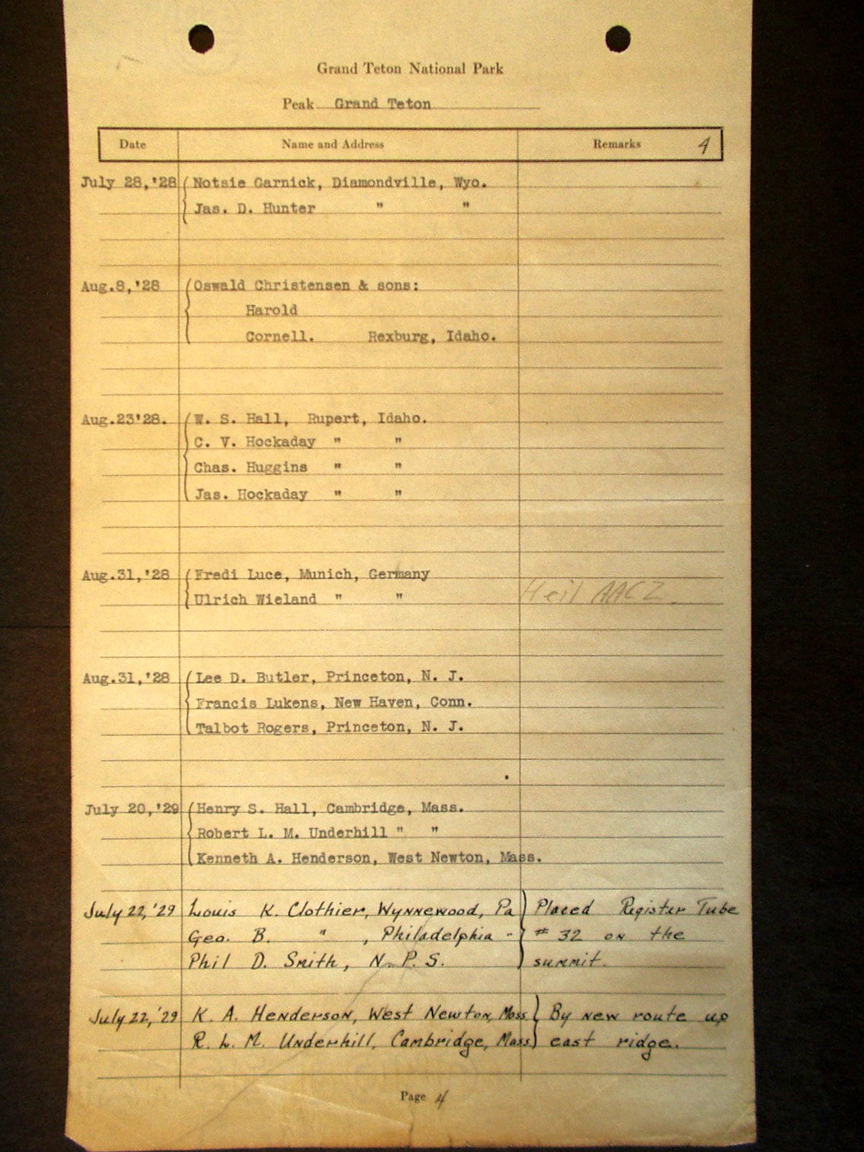 Grand Teton National Park
Peak Grand Teton
Date Name and Address Remarks 4
July 28,'28 Notsie Garnick, Diamondville, Wyo.
Jas. D. Hunter " "
Aug.8,'28 Oswald Christensen & sons:
Harold
Cornell. Rexburg, Idaho.
Aug.23'28. W. S. Hall, Rupert, Idaho.
C. V. Hockaday " "
Chas. Huggins " "
Jas. Hockaday " "
Aug.31,'28 Fredi Luce, Munich, Germany
Ulrich Wieland " " Heil AACZ
Aug.31,'28 Lee D. Butler, Princeton, N. J.
Francis Lukens, New Haven, Conn.
Talbot Rogers, Princeton, N. J.
July 20,'29 Henry S. Hall, Cambridge, Mass.
Robert L. M. Underhill " "
Kenneth A. Henderson, West Newton, Mass.
July 22,'29 Louis K. Clothier, Wynnewood, Pa Placed Register Tube
Geo. B. " , Philadelphia " # 32 on the
Phil D. Smith, N. P. S. summit.
July 22,'29 K. A. Henderson, West Newton, Mass. By new route up
R. L. M. Underhill, Cambridge, Mass east ridge.
Page 4